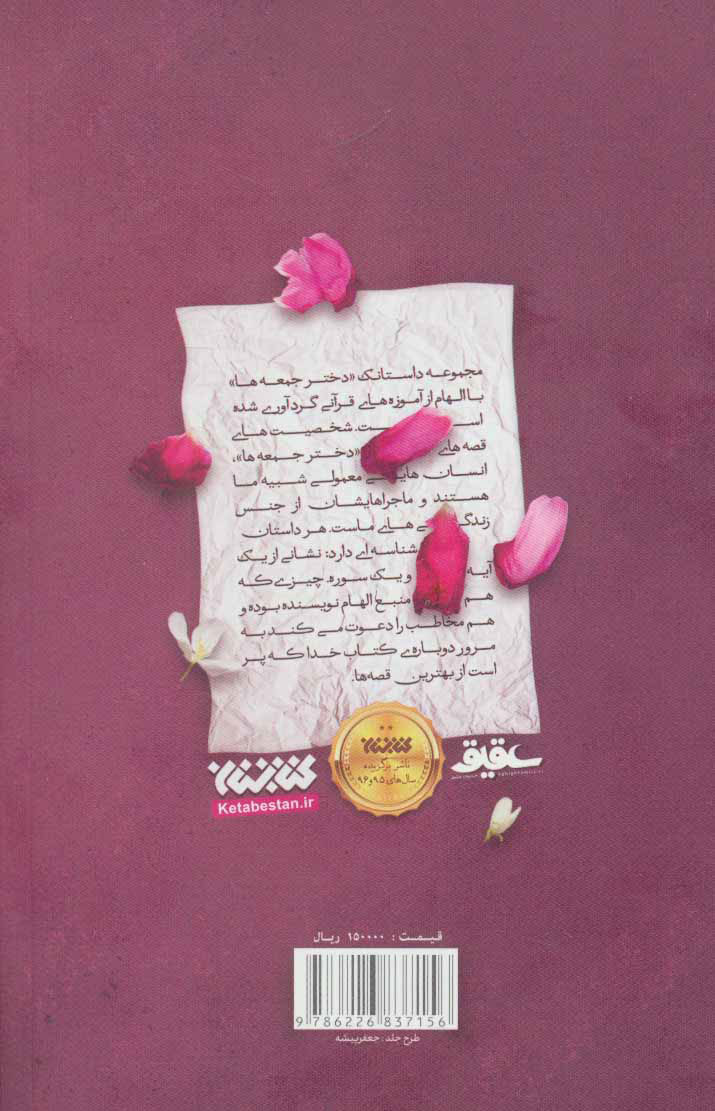 مجموعه داستانک «دختر جمعه ها»
با الهام از آموزه های قرآنی گردآوری شده
است. شخصیت های
قصه های «دختر جمعه ها»،
انسان هایی معمولی شبیه ما
هستند و ماجراهایشان از جنس
زندگی های ماست. هر داستان
شناسه ای دارد: نشانی از یک
آیه و یک سوره. چیزی که
هم منبع الهام نویسنده بوده و
هم مخاطب را دعوت می کند به
مرور دوباره‌ی کتاب خدا که پر
است از بهترین قصه‌ها.
عقیق
کتابستان
ناشر برگزیده
سال های ۹۵ و ۹۶
کتابستان
Ketabestan.ir
قیمت : ۱۵۰۰۰۰ ریال
9 786226 837156
طرح جلد : جعفرپیشه